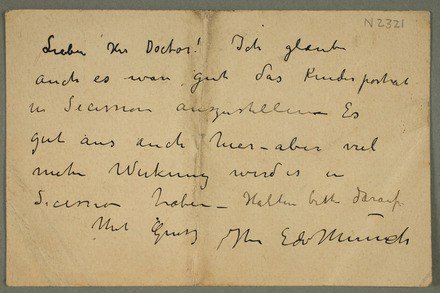 N 2321
Lieber Herr Doctor! Ich glaube
auch es wäre gut das Kinderportrat
in Secession auszustellen – Es
gut aus auch hier – aber viel
mehr Wirkung wird es in
Secession haben – Halten bitte darauf
Mit Gruss Ihr Edv Munch